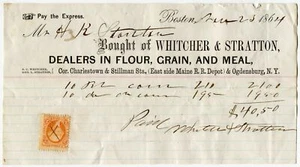 Pay the Express.
Boston, 23 1864
Mr H K Stratton
Bought of WHITCHER & STRATTON,
DEALERS IN FLOUR, GRAIN, AND MEAL,
Cor. Charlestown & Stillman Sts. (East side Maine R. R. Depot) & Ogdensburg, N. Y.
10 corn 210 21.00
10 corn 195 19.50
$40.50
Paid
Whitcher & Stratton